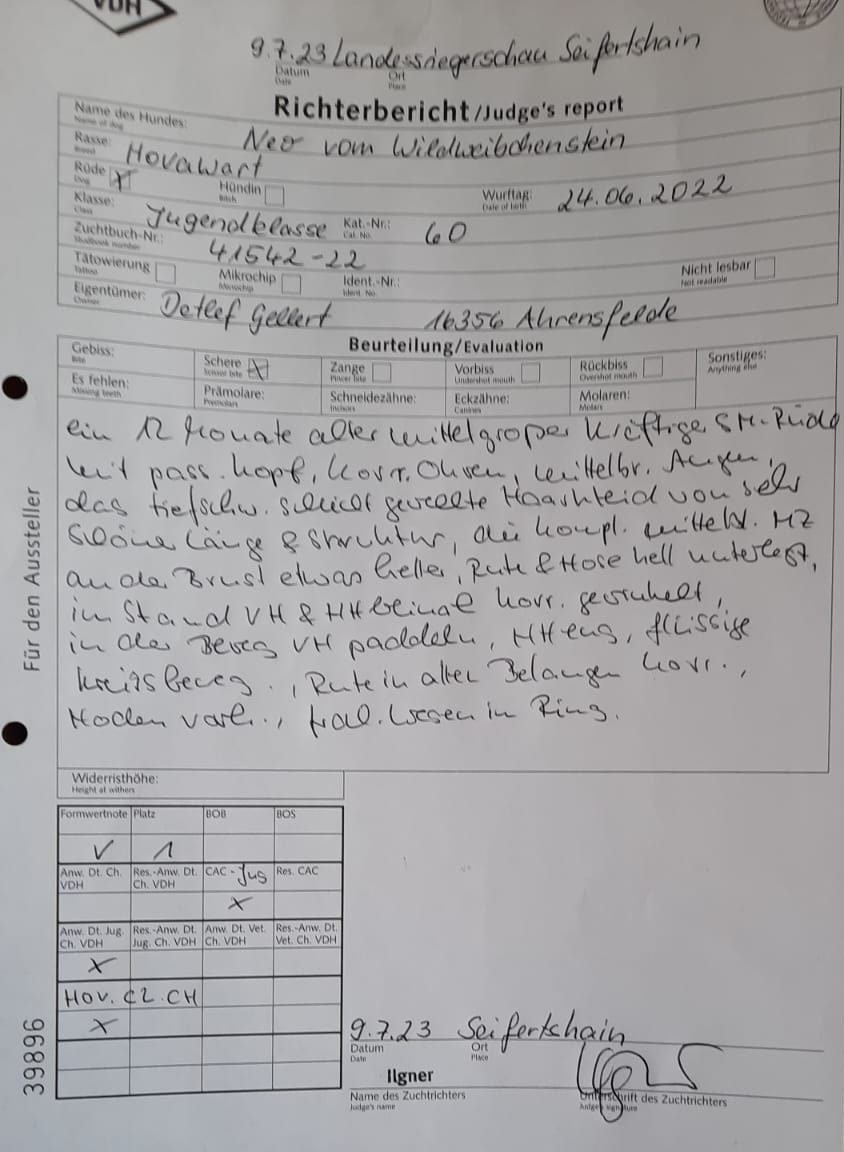 VDH
9.7.23 Landessiegerschau Seifertshain
Datum Ort
Date Place
Richterbericht/Judge's report
Name des Hundes: Neo vom Wildweibchenstein
Name of dog
Rasse: Hovawart
Breed
Rüde X Hündin Wurftag: 24.06.2022
Dog Bitch Date of birth
Klasse: Jugendklasse Kat.-Nr.: 60
Class Cat. No.
Zuchtbuch-Nr.: 41542-22
Studbook number
Tätowierung Mikrochip Ident.-Nr.: Nicht lesbar
Tattoo Microchip Ident. No. Not readable
Eigentümer: Detlef Gellert 16356 Ahrensfelde
Owner
Beurteilung/Evaluation
Gebiss: Schere X Zange Vorbiss Rückbiss Sonstiges:
Bite Scissor bite Pincer bite Undershot mouth Overshot mouth Anything else
Es fehlen: Prämolare: Schneidezähne: Eckzähne: Molaren:
Missing teeth Premolars Incisors Canines Molars
ein 12 Monate alter mittelgroßer kräftige SM-Rüde
mit pass. Kopf, korr. Ohren, mittelbr. Augen,
das tiefschw. schlicht gewellte Haarkleid von sehr
schöner Länge & Struktur, die kompl. mittelbl. MZ
an der Brust etwas heller, Rute & Hose hell unterlegt,
im Stand VH & HH beinahe korr. gewinkelt,
in der Beweg VH paddeln, HH eng, flüssige
Kreisbeweg., Rute in allen Belangen korr.,
Hoden vorh., Wesen im Ring.
Für den Aussteller
Widerristhöhe:
Height at withers
Formwertnote Platz BOB BOS
V 1
Anw. Dt. Ch. VDH Res.-Anw. Dt. Ch. VDH CAC - Jug Res. CAC
X
Anw. Dt. Jug. Ch. VDH Res.-Anw. Dt. Jug. Ch. VDH Anw. Dt. Vet. Ch. VDH Res.-Anw. Dt. Vet. Ch. VDH
X
HOV. CH
X
39896
9.7.23 Seifertshain
Datum Ort
Date Place
Ilgner
Name des Zuchtrichters Unterschrift des Zuchtrichters
Judge's name Judge's signature